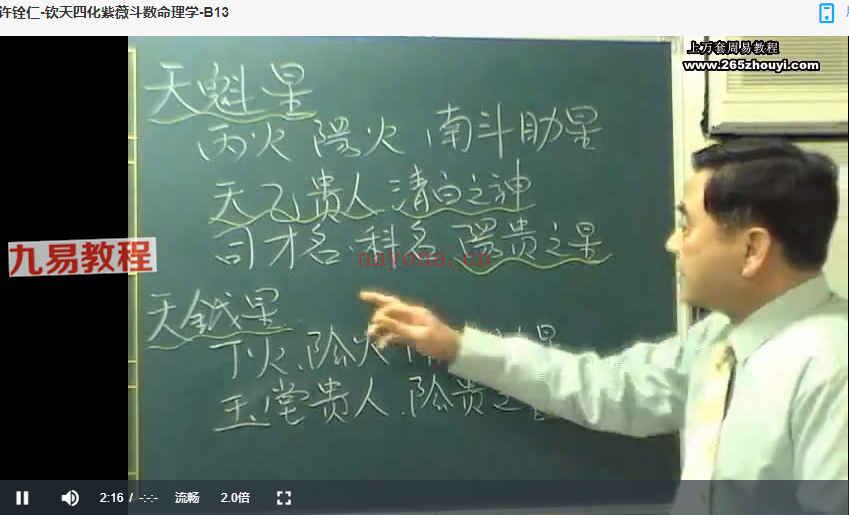 许铨仁-钦天四化紫薇斗数命理学-B13
上万套周易教程
www.265zhouyi.com
天魁星
丙火 陽火 南斗助星
天乙贵人 清白之神
司才名.科名 陽贵之星
九易教程
nayona.cn
天鉞星
丁火.陰火
玉堂贵人.陰贵之
2:16 / -:-:-
流畅
2.0倍